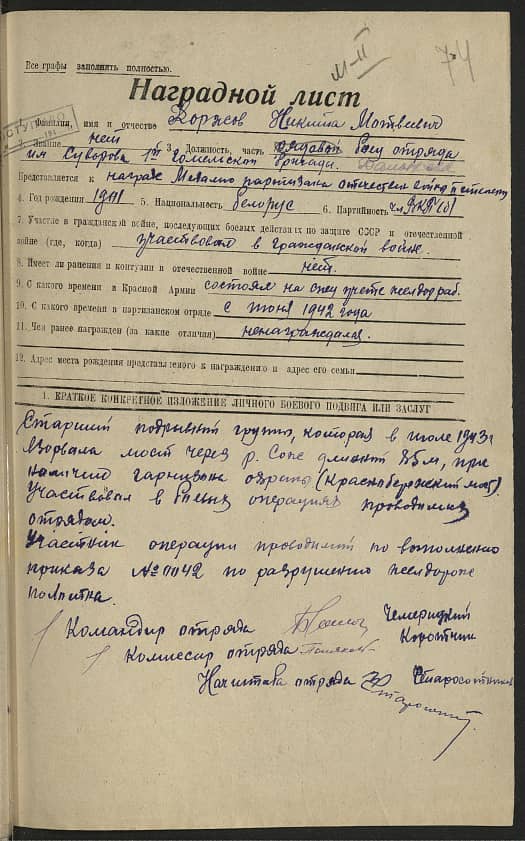 М-II
74
Все графы заполнять полностью.
Наградной лист
Фамилия, имя и отчество Никита Матвеевич
Звание нет 3. Должность, часть рядовой отряда
им Суворова 1й Гомельской бригады.
Представляется к награде Медалью партизана отечествен
4. Год рождения 5. Национальность белорус 6. Партийность чл ВКП(б)
7. Участие в гражданской войне, последующих боевых действиях по защите СССР и отечественной
войне (где, когда) участвовал в гражданской войне.
8. Имеет ли ранения и контузии в отечественной войне нет.
9. С какого времени в Красной Армии состоял на спец учете
10. С какого времени в партизанском отряде с июня 1942 года
11. Чем ранее награжден (за какие отличия) ненаграждался.
12. Адрес места рождения представляемого к награждению и адрес его семьи
1. КРАТКОЕ КОНКРЕТНОЕ ИЗЛОЖЕНИЕ ЛИЧНОГО БОЕВОГО ПОДВИГА ИЛИ ЗАСЛУГ
Старший группы, которая в июле 1943г
Взорвала мост через р. Сож длиной 85м, при
наличии гарнизона охраны
Участвовал в операциях проводимых
отрядом.
Участник операции по выполнению
приказа №0042 по разрушению
полотна.
Командир отряда Чемерицкий
Комиссар отряда Коротчик
Начштаба отряда